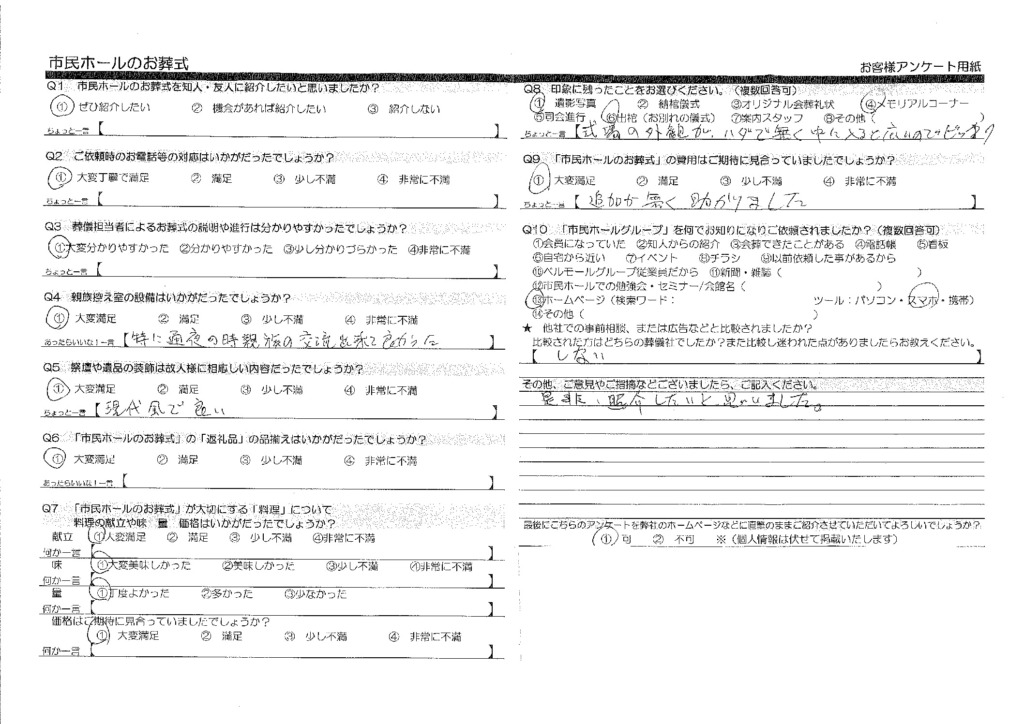 市民ホールのお葬式
お客様アンケート用紙
Q1 市民ホールのお葬式を知人・友人に紹介したいと思いましたか?
① ぜひ紹介したい ② 機会があれば紹介したい ③ 紹介しない
ちょっと一言【 】
Q2 ご依頼時のお電話等の対応はいかがだったでしょうか?
① 大変丁寧で満足 ② 満足 ③ 少し不満 ④ 非常に不満
ちょっと一言【 】
Q3 葬儀担当者によるお葬式の説明や進行は分かりやすかったでしょうか?
①大変分かりやすかった ②分かりやすかった ③少し分かりづらかった ④非常に不満
ちょっと一言【 】
Q4 親族控え室の設備はいかがだったでしょうか?
① 大変満足 ② 満足 ③ 少し不満 ④ 非常に不満
あったらいいな!一言【特に通夜の時親族の交流出来て良かった 】
Q5 祭壇や遺品の装飾は故人様に相応しい内容だったでしょうか?
① 大変満足 ② 満足 ③ 少し不満 ④ 非常に不満
ちょっと一言【現代風で良い 】
Q6 「市民ホールのお葬式」の「返礼品」の品揃えはいかがだったでしょうか?
① 大変満足 ② 満足 ③ 少し不満 ④ 非常に不満
あったらいいな!一言【 】
Q7 「市民ホールのお葬式」が大切にする「料理」について
料理の献立や味 量 価格はいかがだったでしょうか?
献立 ①大変満足 ② 満足 ③ 少し不満 ④非常に不満
何か一言【 】
味 ①大変美味しかった ②美味しかった ③少し不満 ④非常に不満
何か一言【 】
量 ①丁度よかった ②多かった ③少なかった
何か一言【 】
価格はご期待に見合っていましたでしょうか?
① 大変満足 ② 満足 ③ 少し不満 ④ 非常に不満
何か一言【 】
Q8 印象に残ったことをお選びください。(複数回答可)
① 遺影写真 ② 納棺儀式 ③オリジナル会葬礼状 ④メモリアルコーナー
⑤司会進行 ⑥出棺(お別れの儀式) ⑦案内スタッフ ⑧その他( )
ちょっと一言【式場の外観が、ハデで無く中に入ると広いのでビックリ
Q9 「市民ホールのお葬式」の費用はご期待に見合っていましたでしょうか?
① 大変満足 ② 満足 ③ 少し不満 ④ 非常に不満
ちょっと一言【 追加が無く助かりました 】
Q10 「市民ホールグループ」を何でお知りになりご依頼されましたか?(複数回答可)
①会員になっていた ②知人からの紹介 ③会葬できたことがある ④電話帳 ⑤看板
⑥自宅から近い ⑦イベント ⑧チラシ ⑨以前依頼した事があるから
⑩ベルモールグループ従業員だから ⑪新聞・雑誌( )
⑫市民ホールでの勉強会・セミナー/会館名( )
⑬ホームページ(検索ワード: ツール:パソコン・スマホ・携帯)
⑭その他( )
★ 他社での事前相談、または広告などと比較されましたか?
比較された方はどちらの葬儀社でしたか?また比較し迷われた点がありましたらお教えください。
【 しない 】
その他、ご意見やご指摘などございましたら、ご記入ください。
是非、紹介したいと思いました。
最後にこちらのアンケートを弊社のホームページなどに直筆のままご紹介させていただいてよろしいでしょうか?
① 可 ② 不可 ※(個人情報は伏せて掲載いたします)